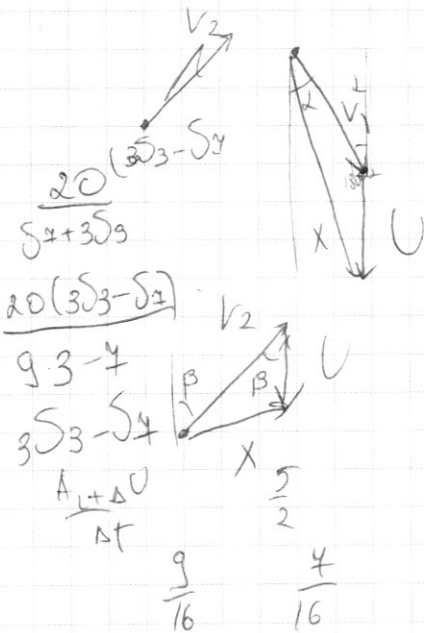 V2
α
V1
X
U
20 (3√3-√7
√7+3√3
20(3√3-√7)
9·3-7
3√3-√7
V2
β
β
U
X
5
2
Δt
9
16
7
16